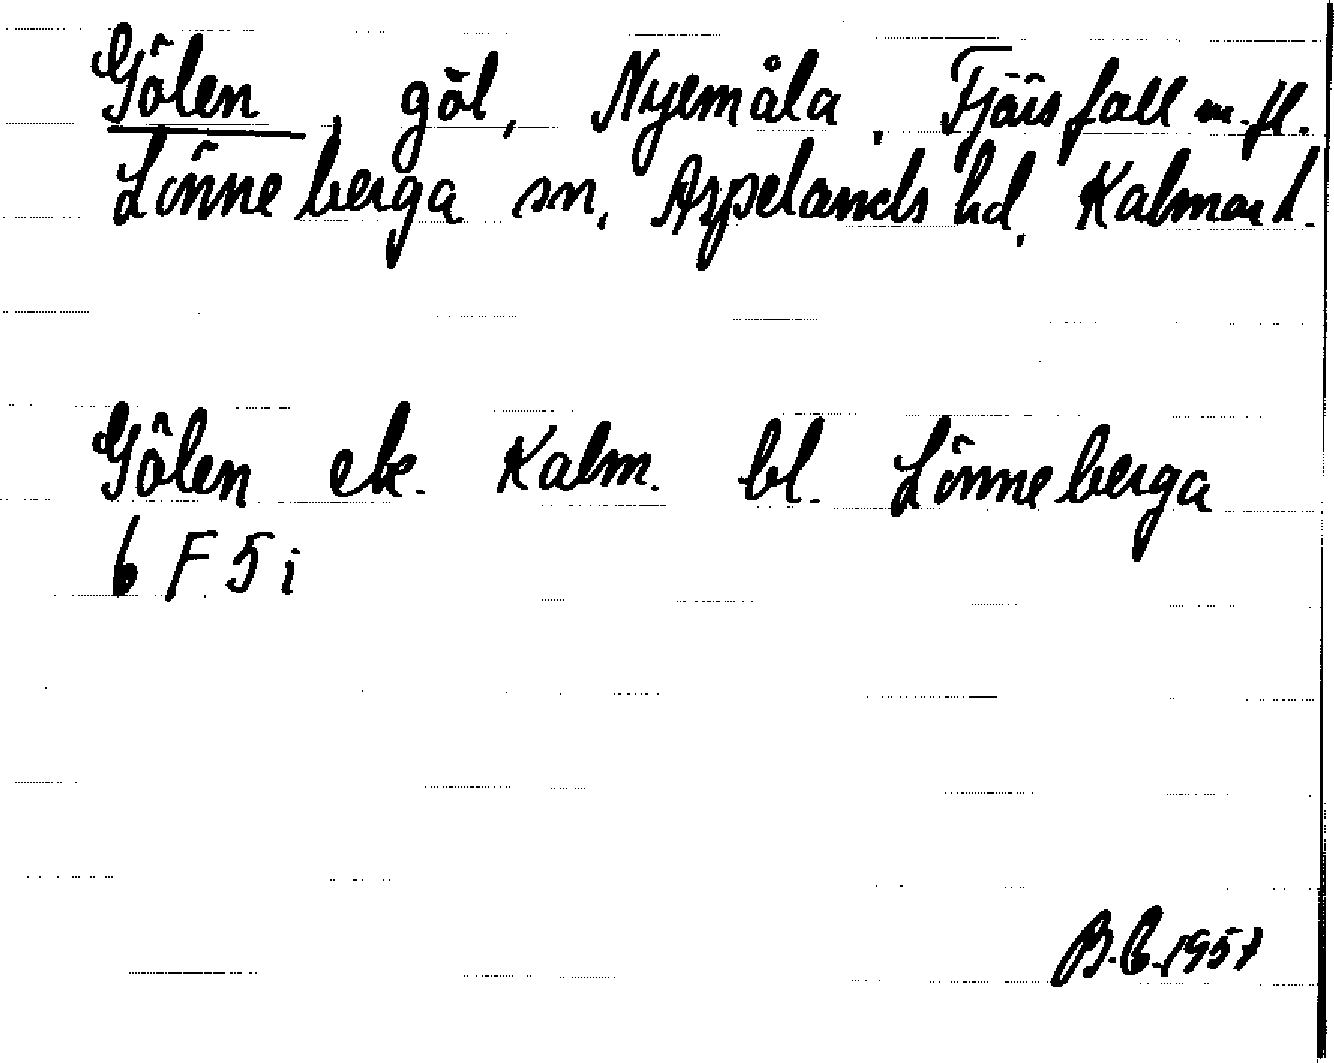 Gölen, göl, Nyemåla, Fjärsfall m.fl.
Lönneberga sn, Aspelands hd, Kalmar l.
Gölen ek. Kalm. bl. Lönneberga
6 F 5 i
B.B. 1957